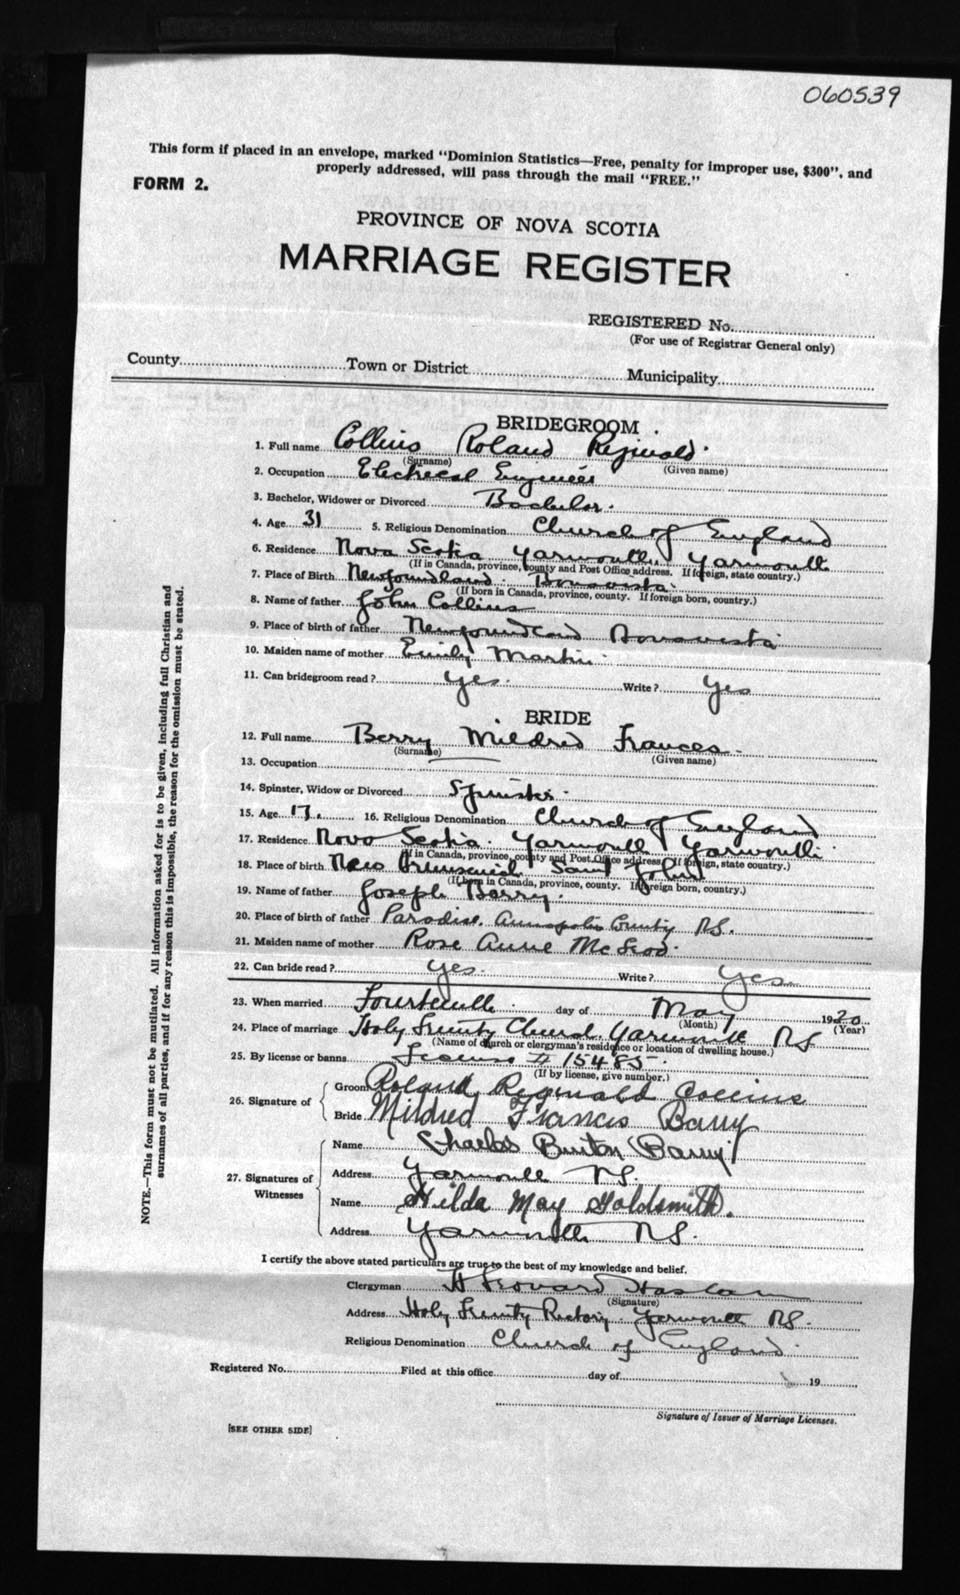 060539
This form if placed in an envelope, marked "Dominion Statistics—Free, penalty for improper use, $300", and
properly addressed, will pass through the mail "FREE."
FORM 2.
PROVINCE OF NOVA SCOTIA
MARRIAGE REGISTER
REGISTERED No.
(For use of Registrar General only)
County Town or District Municipality
BRIDEGROOM
1. Full name Collins Roland Reginald
(Surname) (Given name)
2. Occupation Electrical Engineer
3. Bachelor, Widower or Divorced Bachelor.
4. Age 31 5. Religious Denomination Church of England
6. Residence Nova Scotia Yarmouth, Yarmouth
(If in Canada, province, county and Post Office address. If foreign, state country.)
7. Place of Birth Newfoundland. Bonavista
(If born in Canada, province, county. If foreign born, country.)
8. Name of father John Collins
9. Place of birth of father Newfoundland Bonavista
10. Maiden name of mother Emily Martin
11. Can bridegroom read? yes. Write? yes
BRIDE
12. Full name Berry Mildred Frances
(Surname) (Given name)
13. Occupation
14. Spinster, Widow or Divorced Spinster
15. Age 17. 16. Religious Denomination Church of England
17. Residence Nova Scotia. Yarmouth Yarmouth
(If in Canada, province, county and Post Office address. If foreign, state country.)
18. Place of birth New Brunswick Saint John
(If born in Canada, province, county. If foreign born, country.)
19. Name of father Joseph Barry.
20. Place of birth of father Paradise. Annapolis County N.S.
21. Maiden name of mother Rose Anne McLeod.
22. Can bride read? yes. Write? yes.
23. When married Fourteenth day of May 1920
(Month) (Year)
24. Place of marriage Holy Trinity Church, Yarmouth N.S.
(Name of church or clergyman's residence or location of dwelling house.)
25. By license or banns License # 15485.
(If by license, give number.)
26. Signature of
Groom Roland Reginald Collins
Bride Mildred Francis Barry
27. Signatures of Witnesses
Name Charles Burton Barry
Address Yarmouth N.S.
Name Hilda May Goldsmith.
Address Yarmouth N.S.
I certify the above stated particulars are true to the best of my knowledge and belief.
Clergyman Haslam
(Signature)
Address Holy Trinity Rectory. Yarmouth N.S.
Religious Denomination Church of England
Registered No. Filed at this office day of 19
Signature of Issuer of Marriage Licenses.
[SEE OTHER SIDE]
NOTE.—This form must not be mutilated. All information asked for is to be given, including full Christian and
surnames of all parties, and if for any reason this is impossible, the reason for the omission must be stated.